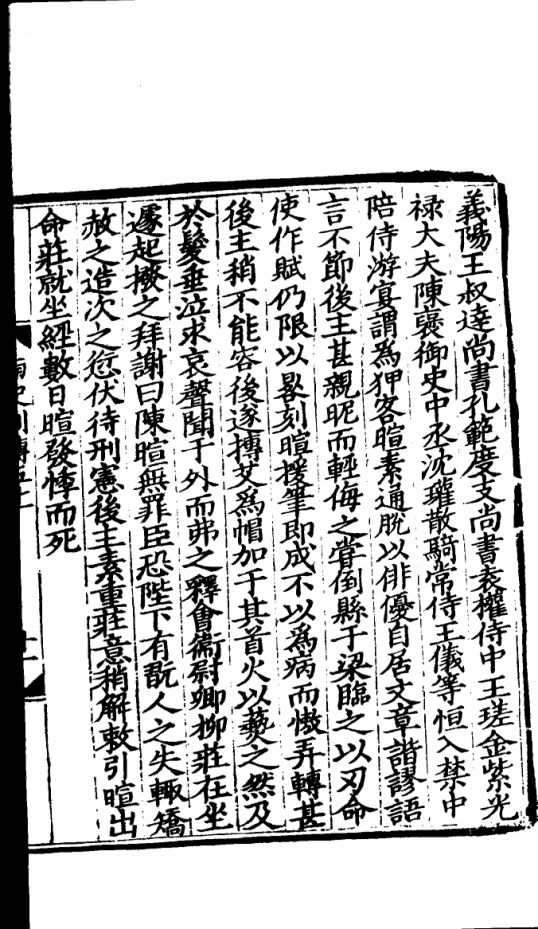 義陽王叔達尚書孔範度支尚書袁權侍中王瑳金紫光
禄大夫陳褒御史中丞沈瓘散騎常侍王儀等恒入禁中
陪侍游宴謂爲狎客暄素通脫以俳優自居文章諧謬語
言不節後主甚親昵而輕侮之甞倒縣于梁臨之以刃命
使作賦仍限以晷刻暄援筆即成不以爲病而慠弄轉甚
後主稍不能容後遂搏艾爲帽加于其首火以爇之然及
於髮垂泣求哀聲聞于外而弗之釋會衞尉卿柳莊在坐
遽起撥之拜謝曰陳暄無罪臣恐陛下有翫人之失輙矯
赦之造次之愆伏待刑憲後主素重莊意稍解敕引暄出
命莊就坐經數日暄發悸而死